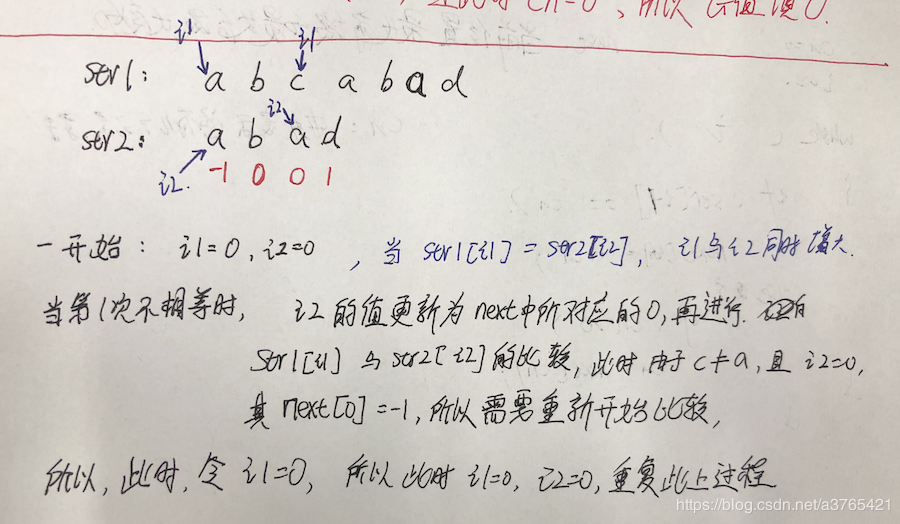 此时cn=0,所以 值填0.
i1 i1
str1: a b c a b a d
i2
str2: a b a d
i2. -1 0 0 1
一开始: i1=0,i2=0 ,当 str1[i1] = str2[i2], i1与i2同时增大.
当第1次不相等时, i2的值更新为next中所对应的0,再进行.
str1[i1] 与str2[i2]的比较,此时由于c≠a,且i2=0,
其next[0]=-1,所以需要重新开始比较,
所以,此时,令i1=0, 所以此时i1=0,i2=0,重复此上过程
https://blog.csdn.net/a3765421